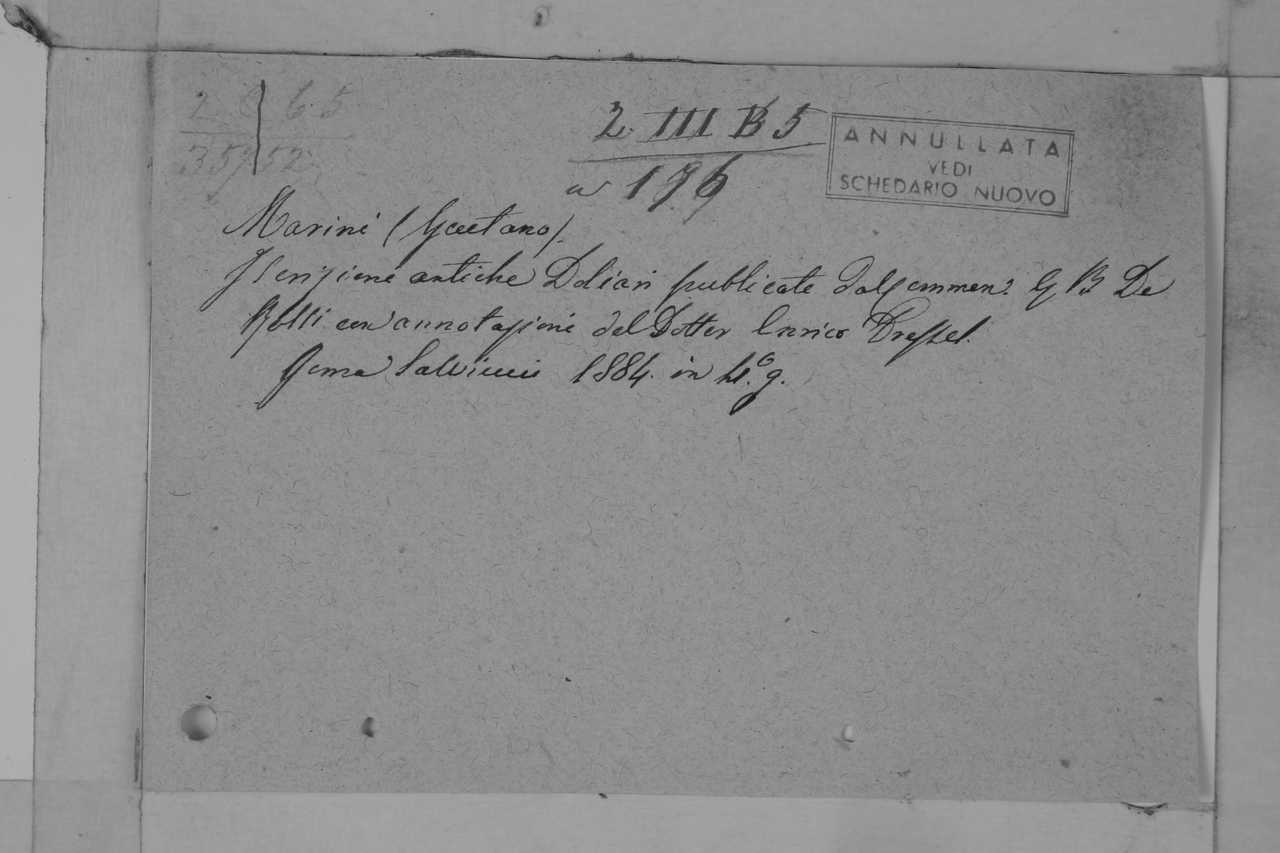 2 6 5
35/52
2 III B 5
a 196
ANNULLATA
VEDI
SCHEDARIO NUOVO
Marini (Gaetano).
Iscrizioni antiche Doliari publicate dal commen. G B De
Rossi con annotazioni del Dotter Enrico Dressel.
Roma Salviucci 1884. in 4.º g.